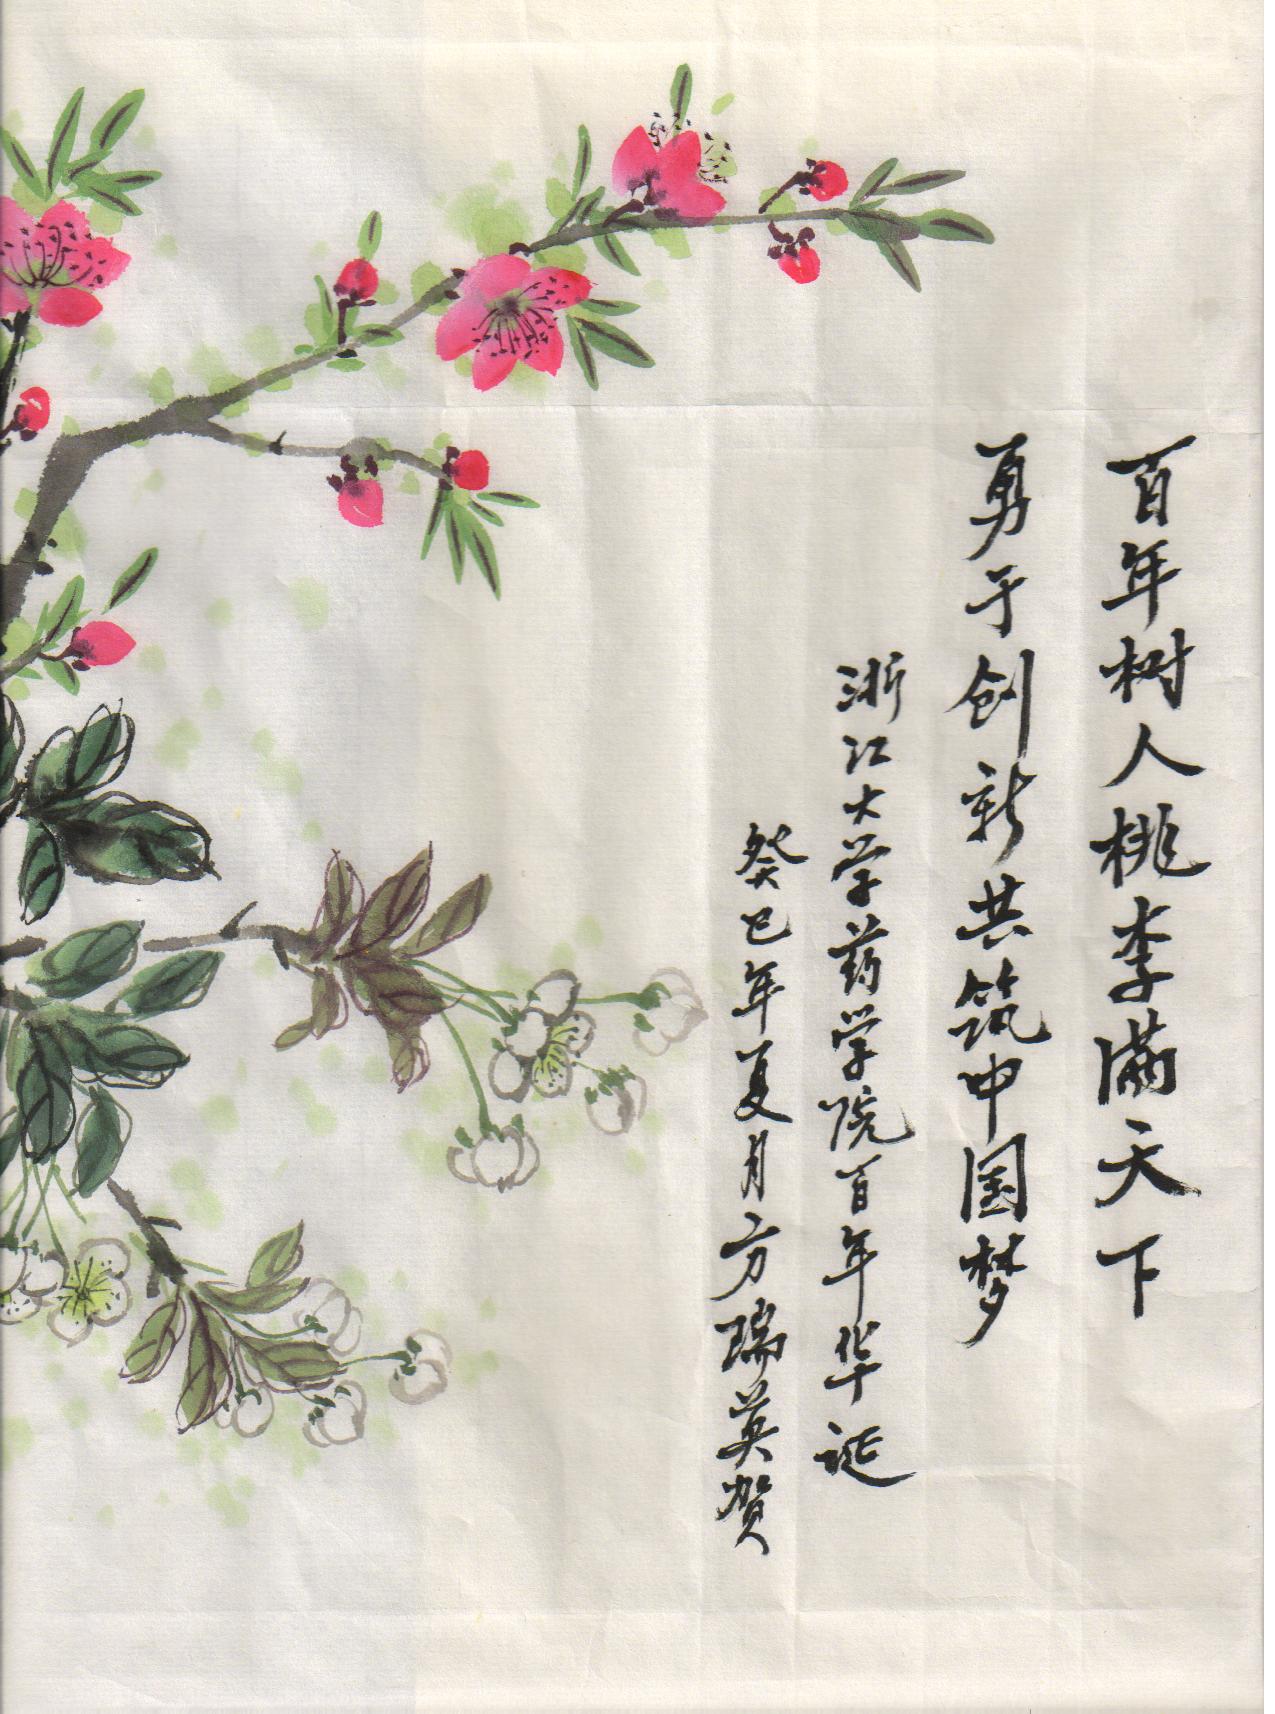 百年树人桃李满天下
勇于创新共筑中国梦
浙江大学药学院百年华诞
癸巳年夏月方瑞英贺